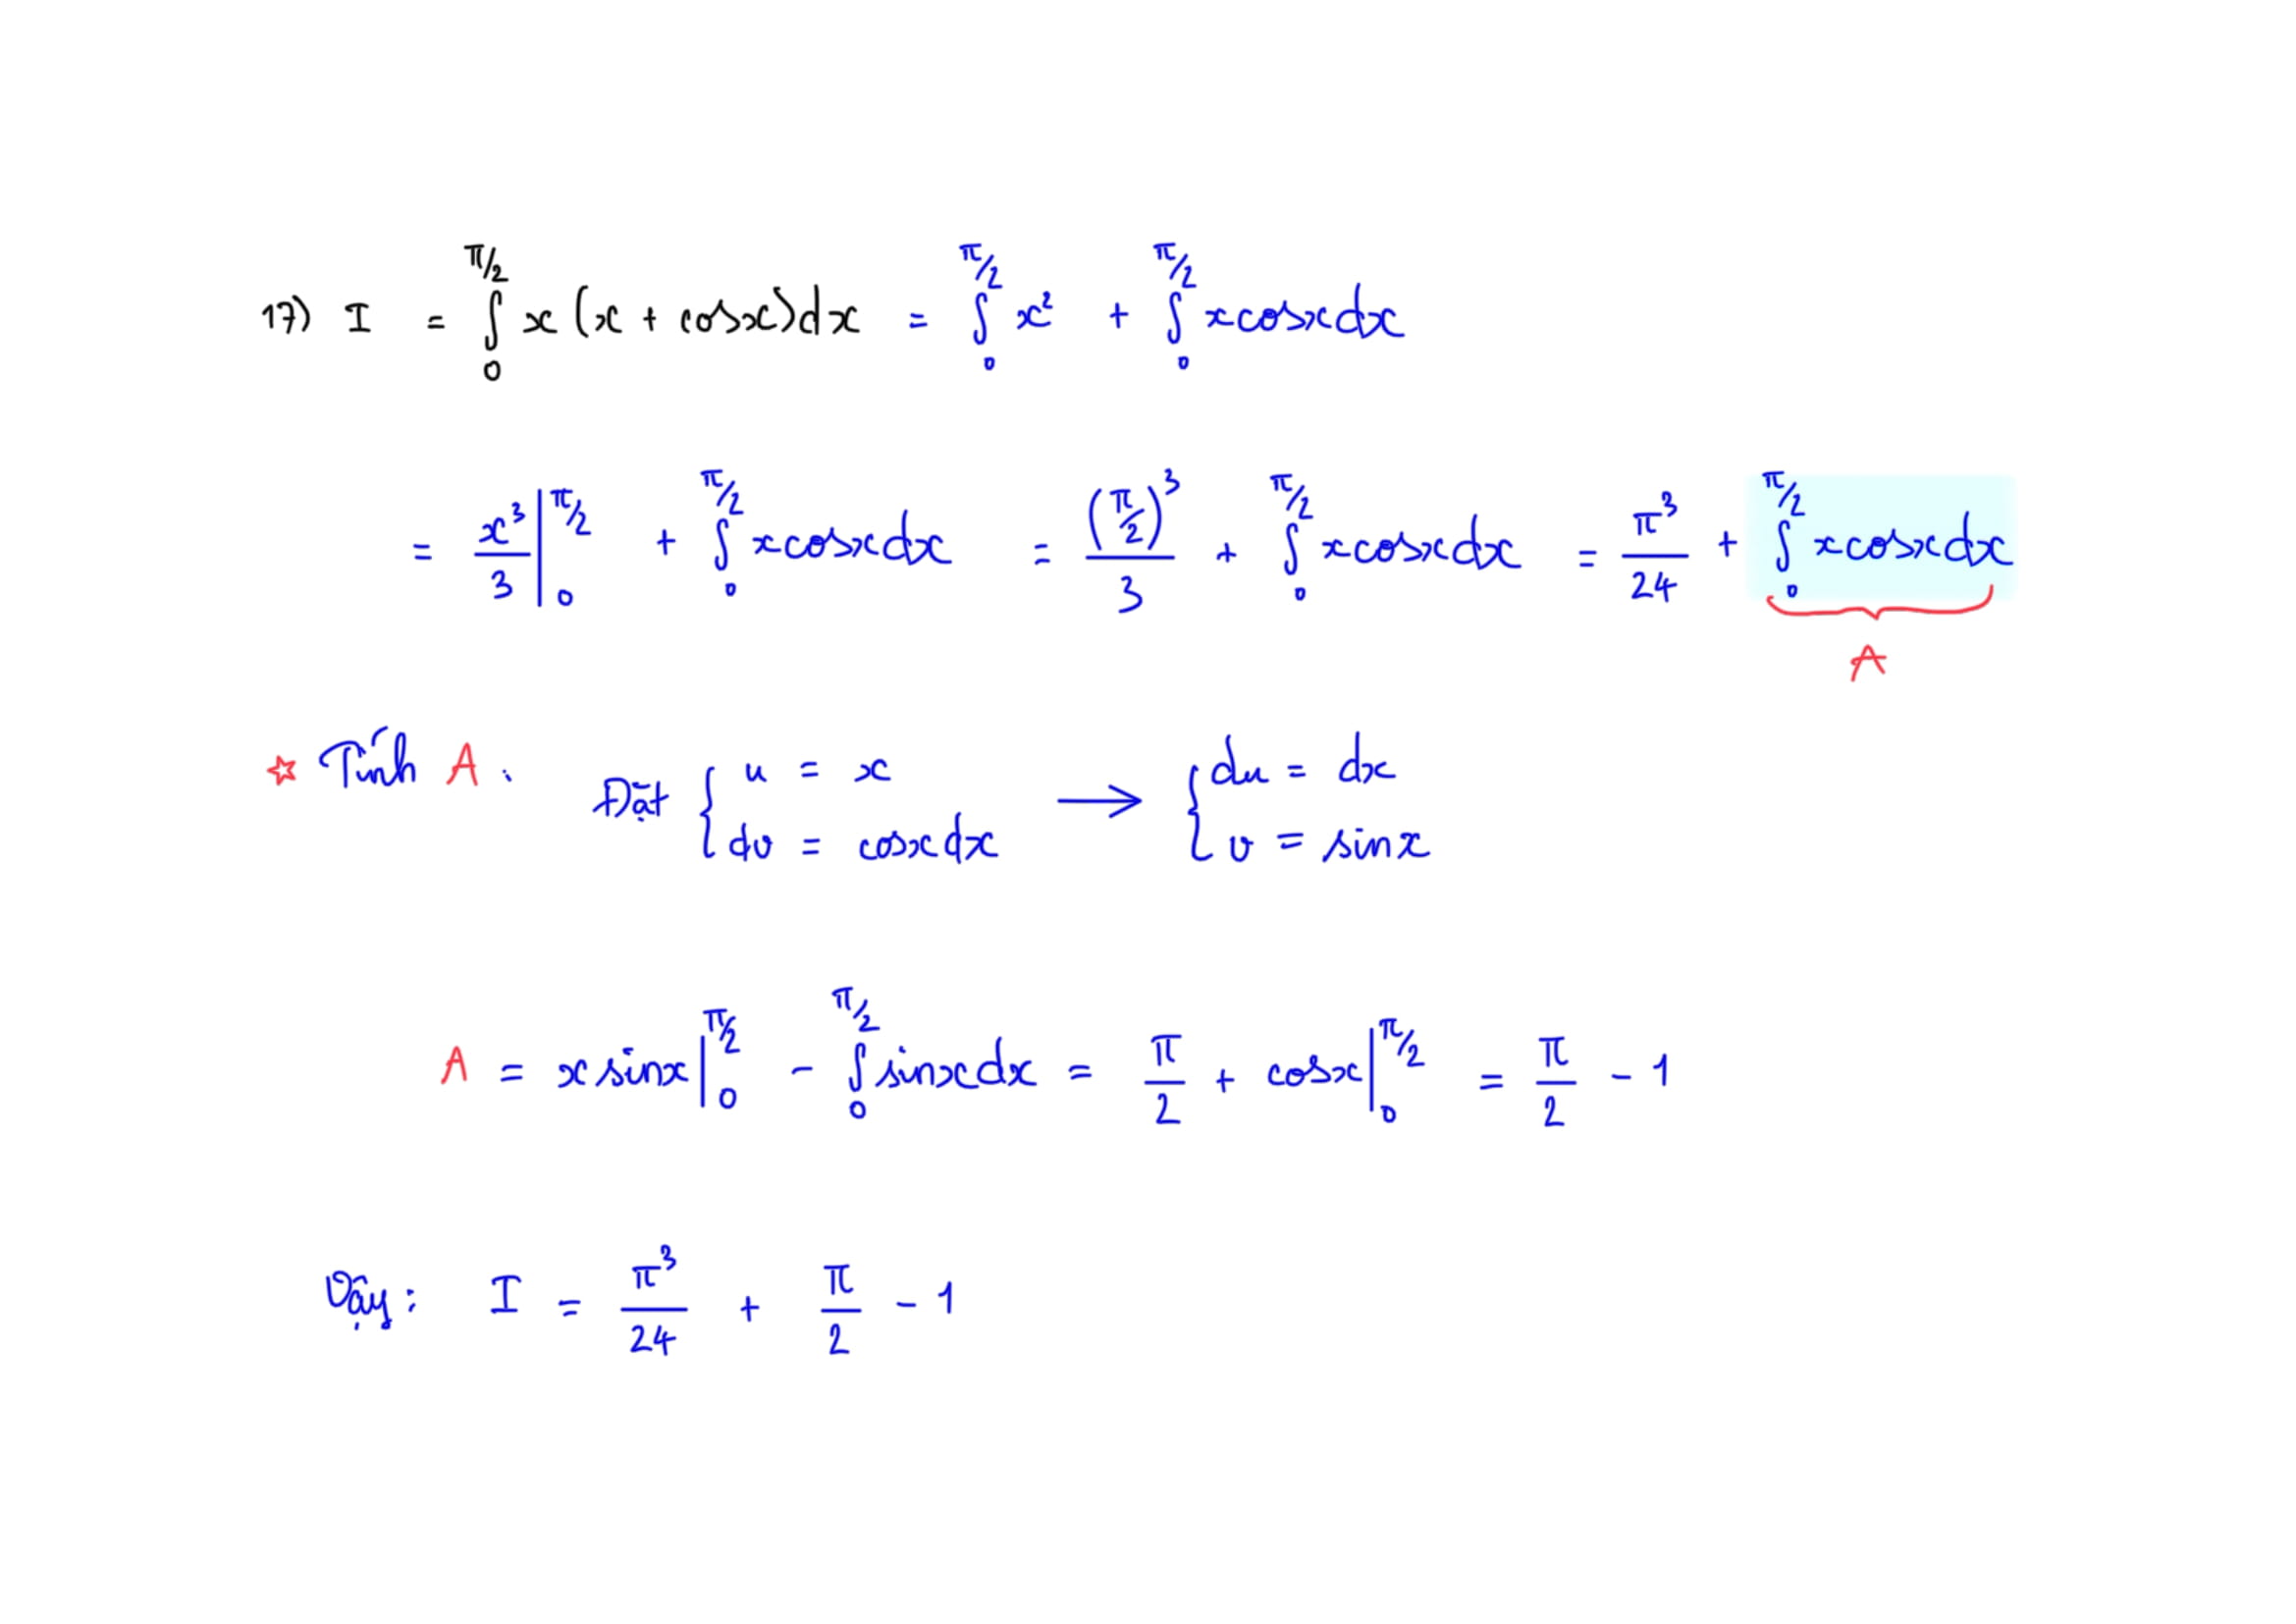 17) I = ∫₀^{π/2} x (x + cosx) dx = ∫₀^{π/2} x² + ∫₀^{π/2} xcosxdx
= x³/3 |₀^{π/2} + ∫₀^{π/2} xcosxdx = (π/2)³/3 + ∫₀^{π/2} xcosxdx = π³/24 + ∫₀^{π/2} xcosxdx
A
☆ Tính A :
Đặt { u = x ; dv = cosxdx → { du = dx ; v = sinx
A = x sinx |₀^{π/2} - ∫₀^{π/2} sinxdx = π/2 + cosx |₀^{π/2} = π/2 - 1
Vậy : I = π³/24 + π/2 - 1